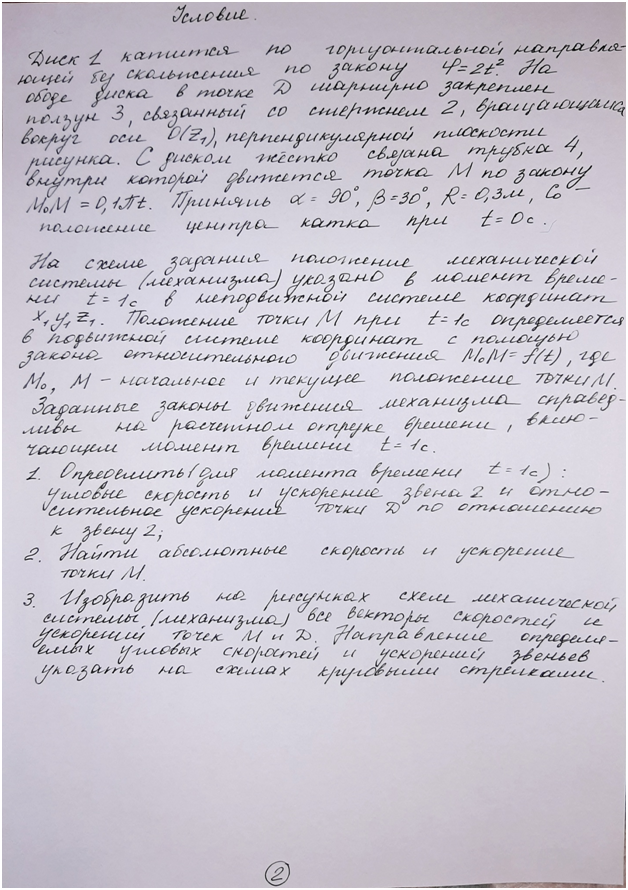 Условие.
Диск 1 катится по горизонтальной направля-
ющей без скольжения по закону φ=2t². На
ободе диска в точке D шарнирно закреплен
ползун 3, связанный со стержнем 2, вращающимся
вокруг оси O(Z₁), перпендикулярной плоскости
рисунка. С диском жёстко связана трубка 4,
внутри которой движется точка М по закону
M₀M = 0,1πt. Принять α = 90°, β=30°, R= 0,3м, C₀ –
положение центра катка при t=0с.
На схеме задания положение механической
системы (механизма) указано в момент време-
ни t=1с в неподвижной системе координат
x₁y₁z₁. Положение точки М при t=1с определяется
в подвижной системе координат с помощью
закона относительного движения M₀M=f(t), где
M₀, M – начальное и текущее положение точки М.
Заданные законы движения механизма справед-
ливы на расчетном отрезке времени, вклю-
чающем момент времени t=1с.
1. Определить (для момента времени t=1с):
угловые скорость и ускорение звена 2 и отно-
сительное ускорение точки D по отношению
к звену 2;
2. Найти абсолютные скорость и ускорение
точки М.
3. Изобразить на рисунках схем механической
системы (механизма) все векторы скоростей и
ускорений точек М и D. Направление определя-
емых угловых скоростей и ускорений звеньев
указать на схемах круговыми стрелками.
2